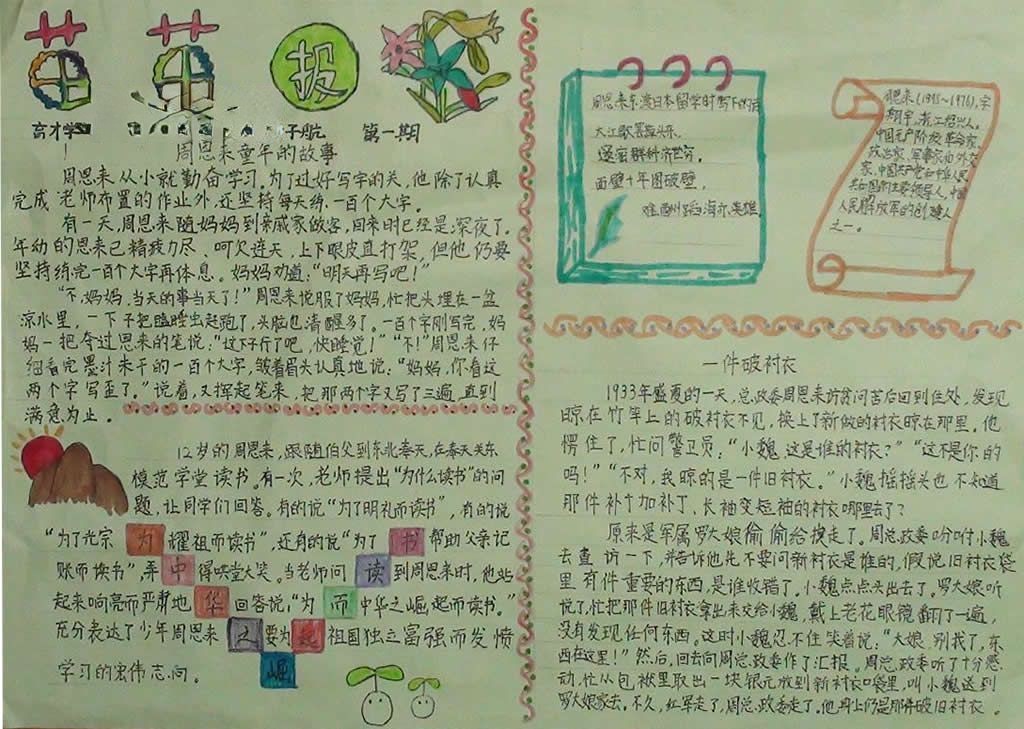 英 英 报
育才学 子航 第一期
周恩来童年的故事
周恩来从小就勤奋学习。为了过好写字的关,他除了认真
完成老师布置的作业外,还坚持每天练一百个大字。
有一天,周恩来随妈妈到亲戚家做客,回来时已经是深夜了。
年幼的思来已精疲力尽、呵欠连天,上下眼皮直打架,但他仍要
坚持练完一百个大字再休息。妈妈劝道:“明天再写吧!”
“不,妈妈,当天的事当天了!”周恩来说服了妈妈,忙把头埋在一盆
凉水里,一下子把瞌睡虫赶跑了,头脑也清醒多了。一百个字刚写完,妈
妈一把夺过恩来的笔说:“这下子行了吧,快睡觉!”“不!”周恩来仔
细看完墨汁未干的一百个大字,皱着眉头认真地说:“妈妈,你看这
两个字写歪了。”说着,又挥起笔来,把那两个字又写了三遍,直到
满意为止。
12岁的周恩来,跟随伯父到东北奉天,在奉天关东
模范学堂读书。有一次,老师提出“为什么读书”的问
题,让同学们回答。有的说“为了明礼而读书”,有的说
“为了光宗 为 耀祖而读书”,还有的说“为了 书 帮助父亲记
账而读书”,弄 中 得哄堂大笑。当老师问 读 到周恩来时,他站
起来响亮而严肃地 华 回答说:“为 而 中华之崛起而读书。”
充分表达了少年周恩来 之 要为 起 祖国独立富强而发愤
学习的宏伟志向。 崛
周恩来东渡日本留学时写下的诗
大江歌罢掉头东,
邃密群科济世穷。
面壁十年图破壁,
难酬蹈海亦英雄。
周恩来(1898~1976),字
翔宇,浙江绍兴人。
中国无产阶级革命家、
政治家、军事家和外交
家,中国共产党和中华人民
共和国的主要领导人,中国
人民解放军的创建人
之一。
一件破衬衣
1933年盛夏的一天,总政委周恩来访贫问苦后回到住处,发现
晾在竹竿上的破衬衣不见,换上了新做的衬衣晾在那里。他
愣住了,忙问警卫员:“小魏,这是谁的衬衣?”“这不是你的
吗!”“不对,我晾的是一件旧衬衣。”小魏摇摇头也不知道
那件补丁加补丁、长袖变短袖的衬衣哪里去了?
原来是军属罗大娘偷偷给拽走了。周总政委吩咐小魏
去查访一下,并告诉他先不要问新衬衣是谁的,假说旧衬衣袋
里有件重要的东西,是谁收错了。小魏点点头出去了。罗大娘听
说了,忙把那件旧衬衣拿出来交给小魏,戴上老花眼镜翻了一遍,
没有发现任何东西。这时小魏忍不住笑着说:“大娘,别找了,东
西在这里!”然后,回去向周总政委作了汇报。周总政委听了十分感
动,忙从包袱里取出一块银元放到新衬衣口袋里,叫小魏送到
罗大娘家去。不久,红军走了,周总政委走了。他身上仍是那件破旧衬衣。